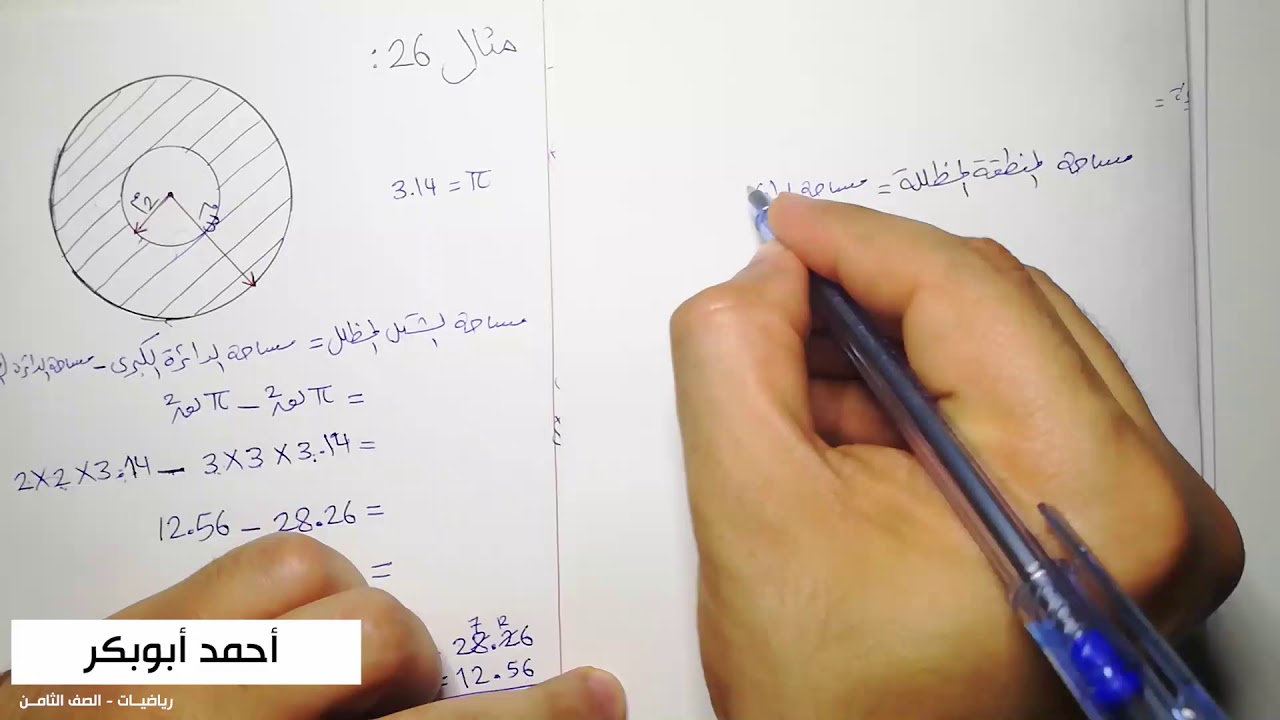 مثال 26 :
π = 3.14
2م
3م
مساحة الشكل المظلل = مساحة الدائرة الكبرى - مساحة الدائرة
= π نق² - π نق²
= 3.14 × 3 × 3 - 3.14 × 2 × 2
= 28.26 - 12.56
=
7 12
28.26
12.56
مساحة المنطقة المظللة = مساحة
أحمد أبوبكر
رياضيات - الصف الثامن